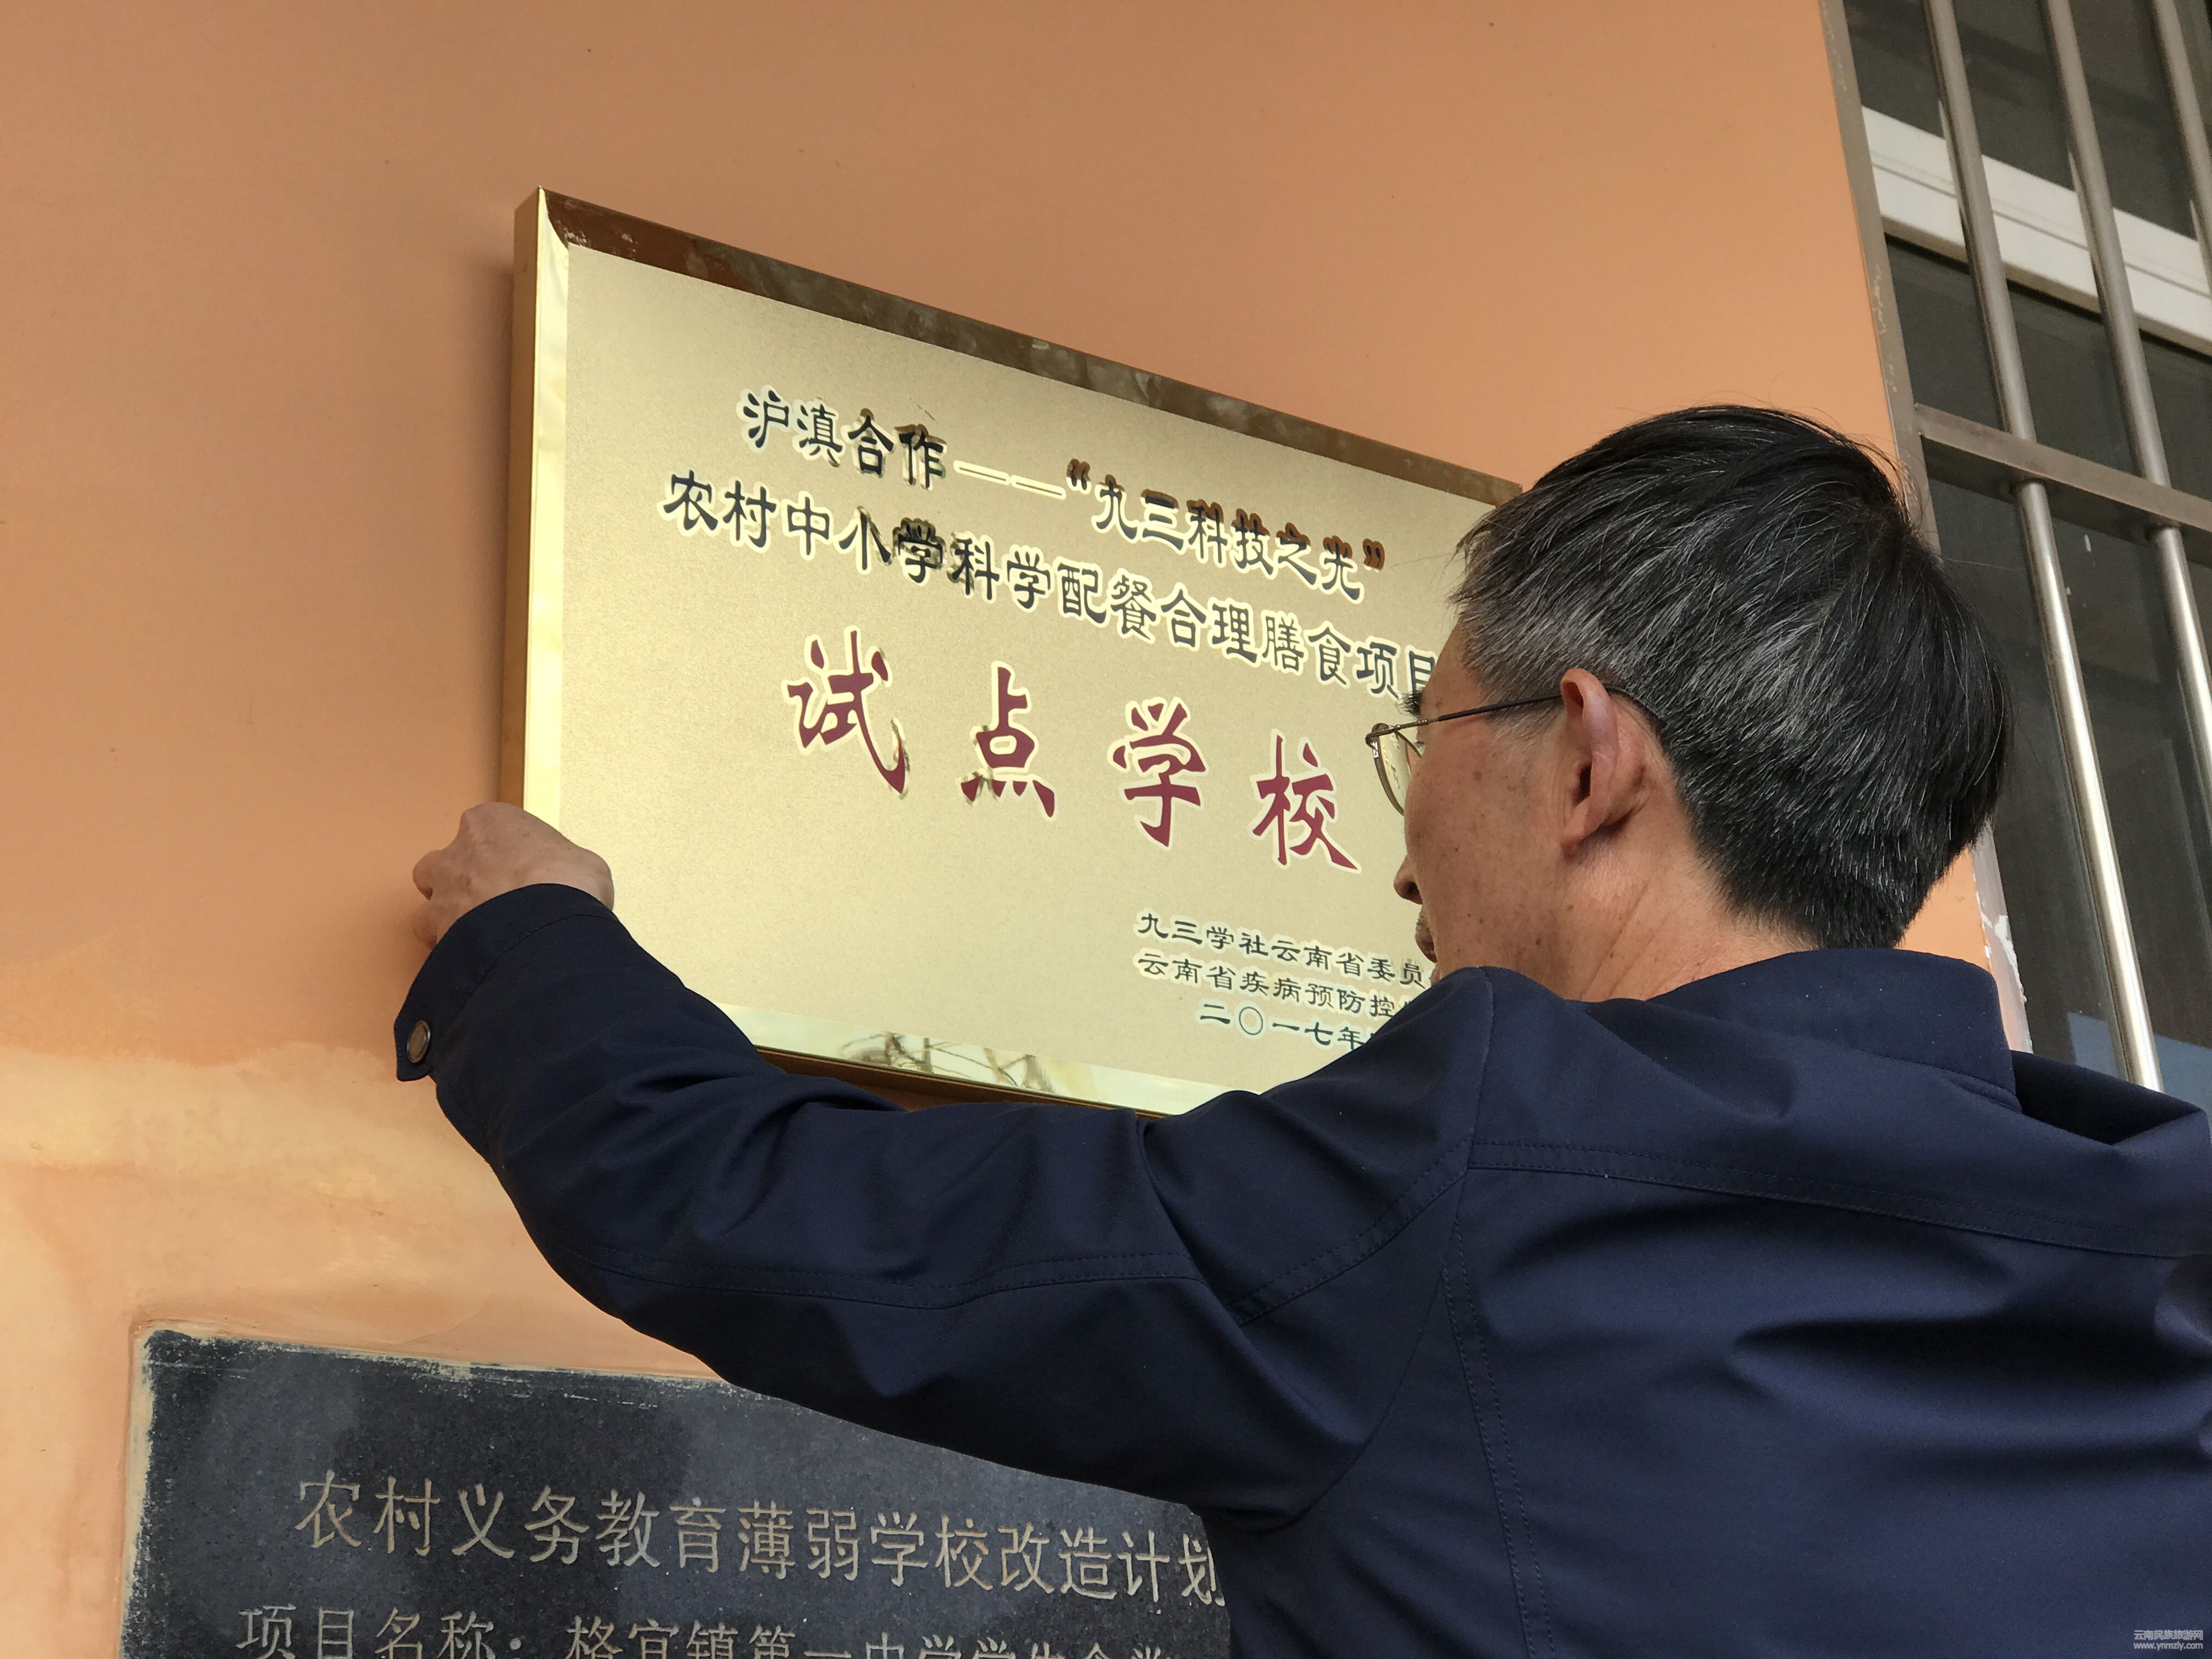 沪滇合作——“九三科技之光”
农村中小学科学配餐合理膳食项目
试点学校
九三学社云南省委员
云南省疾病预防控
二〇一七年
农村义务教育薄弱学校改造计划
项目名称：格宜镇第一中学学生食堂
云南民族旅游网
www.ynmzly.com